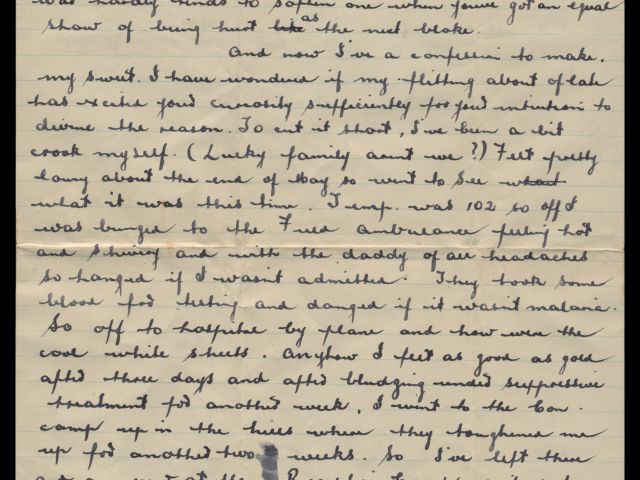 was hardly tends to soften one when you've got an equal
show of being hurt like as the next bloke.
And now I've a confession to make,
my sweet. I have wondered if my flitting about of late
has excited your curiosity sufficiently for your intuition to
divine the reason. To cut it short, I've been a bit
crook myself. (Lucky family arent we?) Felt pretty
lousy about the end of May so went to see what
what it was this time. Temp. was 102 so off I
was bunged to the Field ambulance feeling hot
and shivery and with the daddy of all headaches
so hanged if I wasn't admitted. They took some
blood for testing and danged if it wasn't malaria.
So off to hospital by plane and how were the
cool white sheets. Anyhow I felt as good as gold
after three days and after bludging under suppressive
treatment for another week, I went to the Con.
camp up in the hills where they toughened me
up for another two weeks. So I've left there
at the